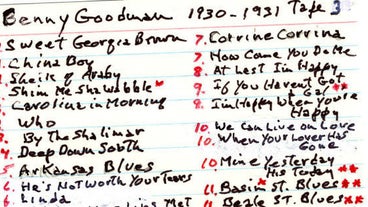 Benny Goodman 1930-1931 Tape 3
Sweet Georgia Brown
1. China Boy
2. Sheik of Araby
Shim Me Sha Wabble *
2. Carolina in Morning
Who
3. By the Shalimar
4. Deep Down South
5. Arkansas Blues
6. He's Not Worth Your Tears
6. Linda
Met
7. Cotrine Corrina
7. How Come You Do Me
8. At Last I'm Happy
9. If You Haven't Got
Gal **
9. I'm Happy When You're
Happy
10. We Can Live on Love
10. When Your Lover Has
Gone
10 Mine Yesterday
His Today **
11. Basin St. Blues **
11. Beale St. Blues **